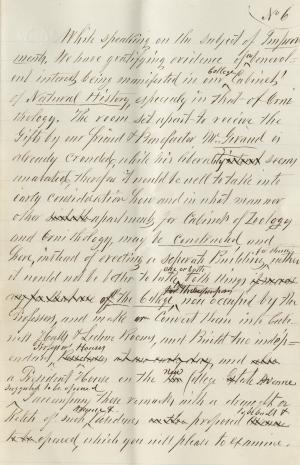 No 6
While speaking on the subject of Improve
ments, We have gratifying evidence of a benevol-
ent interest being manifested in our College Cabinets
of Natural History, especially in that of Orni
thology. The room set apart to receive the
Gifts by our friend & Benefactor Mr. Giraud is
already crowded, while his liberality seems
unabated, therefor it would be well to take into
early consideration how and in what manner
other apartments, for Cabinets of Zoology
and Ornithology, may be constructed and
here, instead of erecting a separate Building,
it would not be better to take one or both wings
of the College, now occupied by the
Professors, and make or Convert them into Cabi-
net Halls & Lecture Rooms, and Build two indep-
endent and
a President House on the new College Avenue
I accompany these remarks with a
Sketch of such proposed
opened, which you will please to examine.